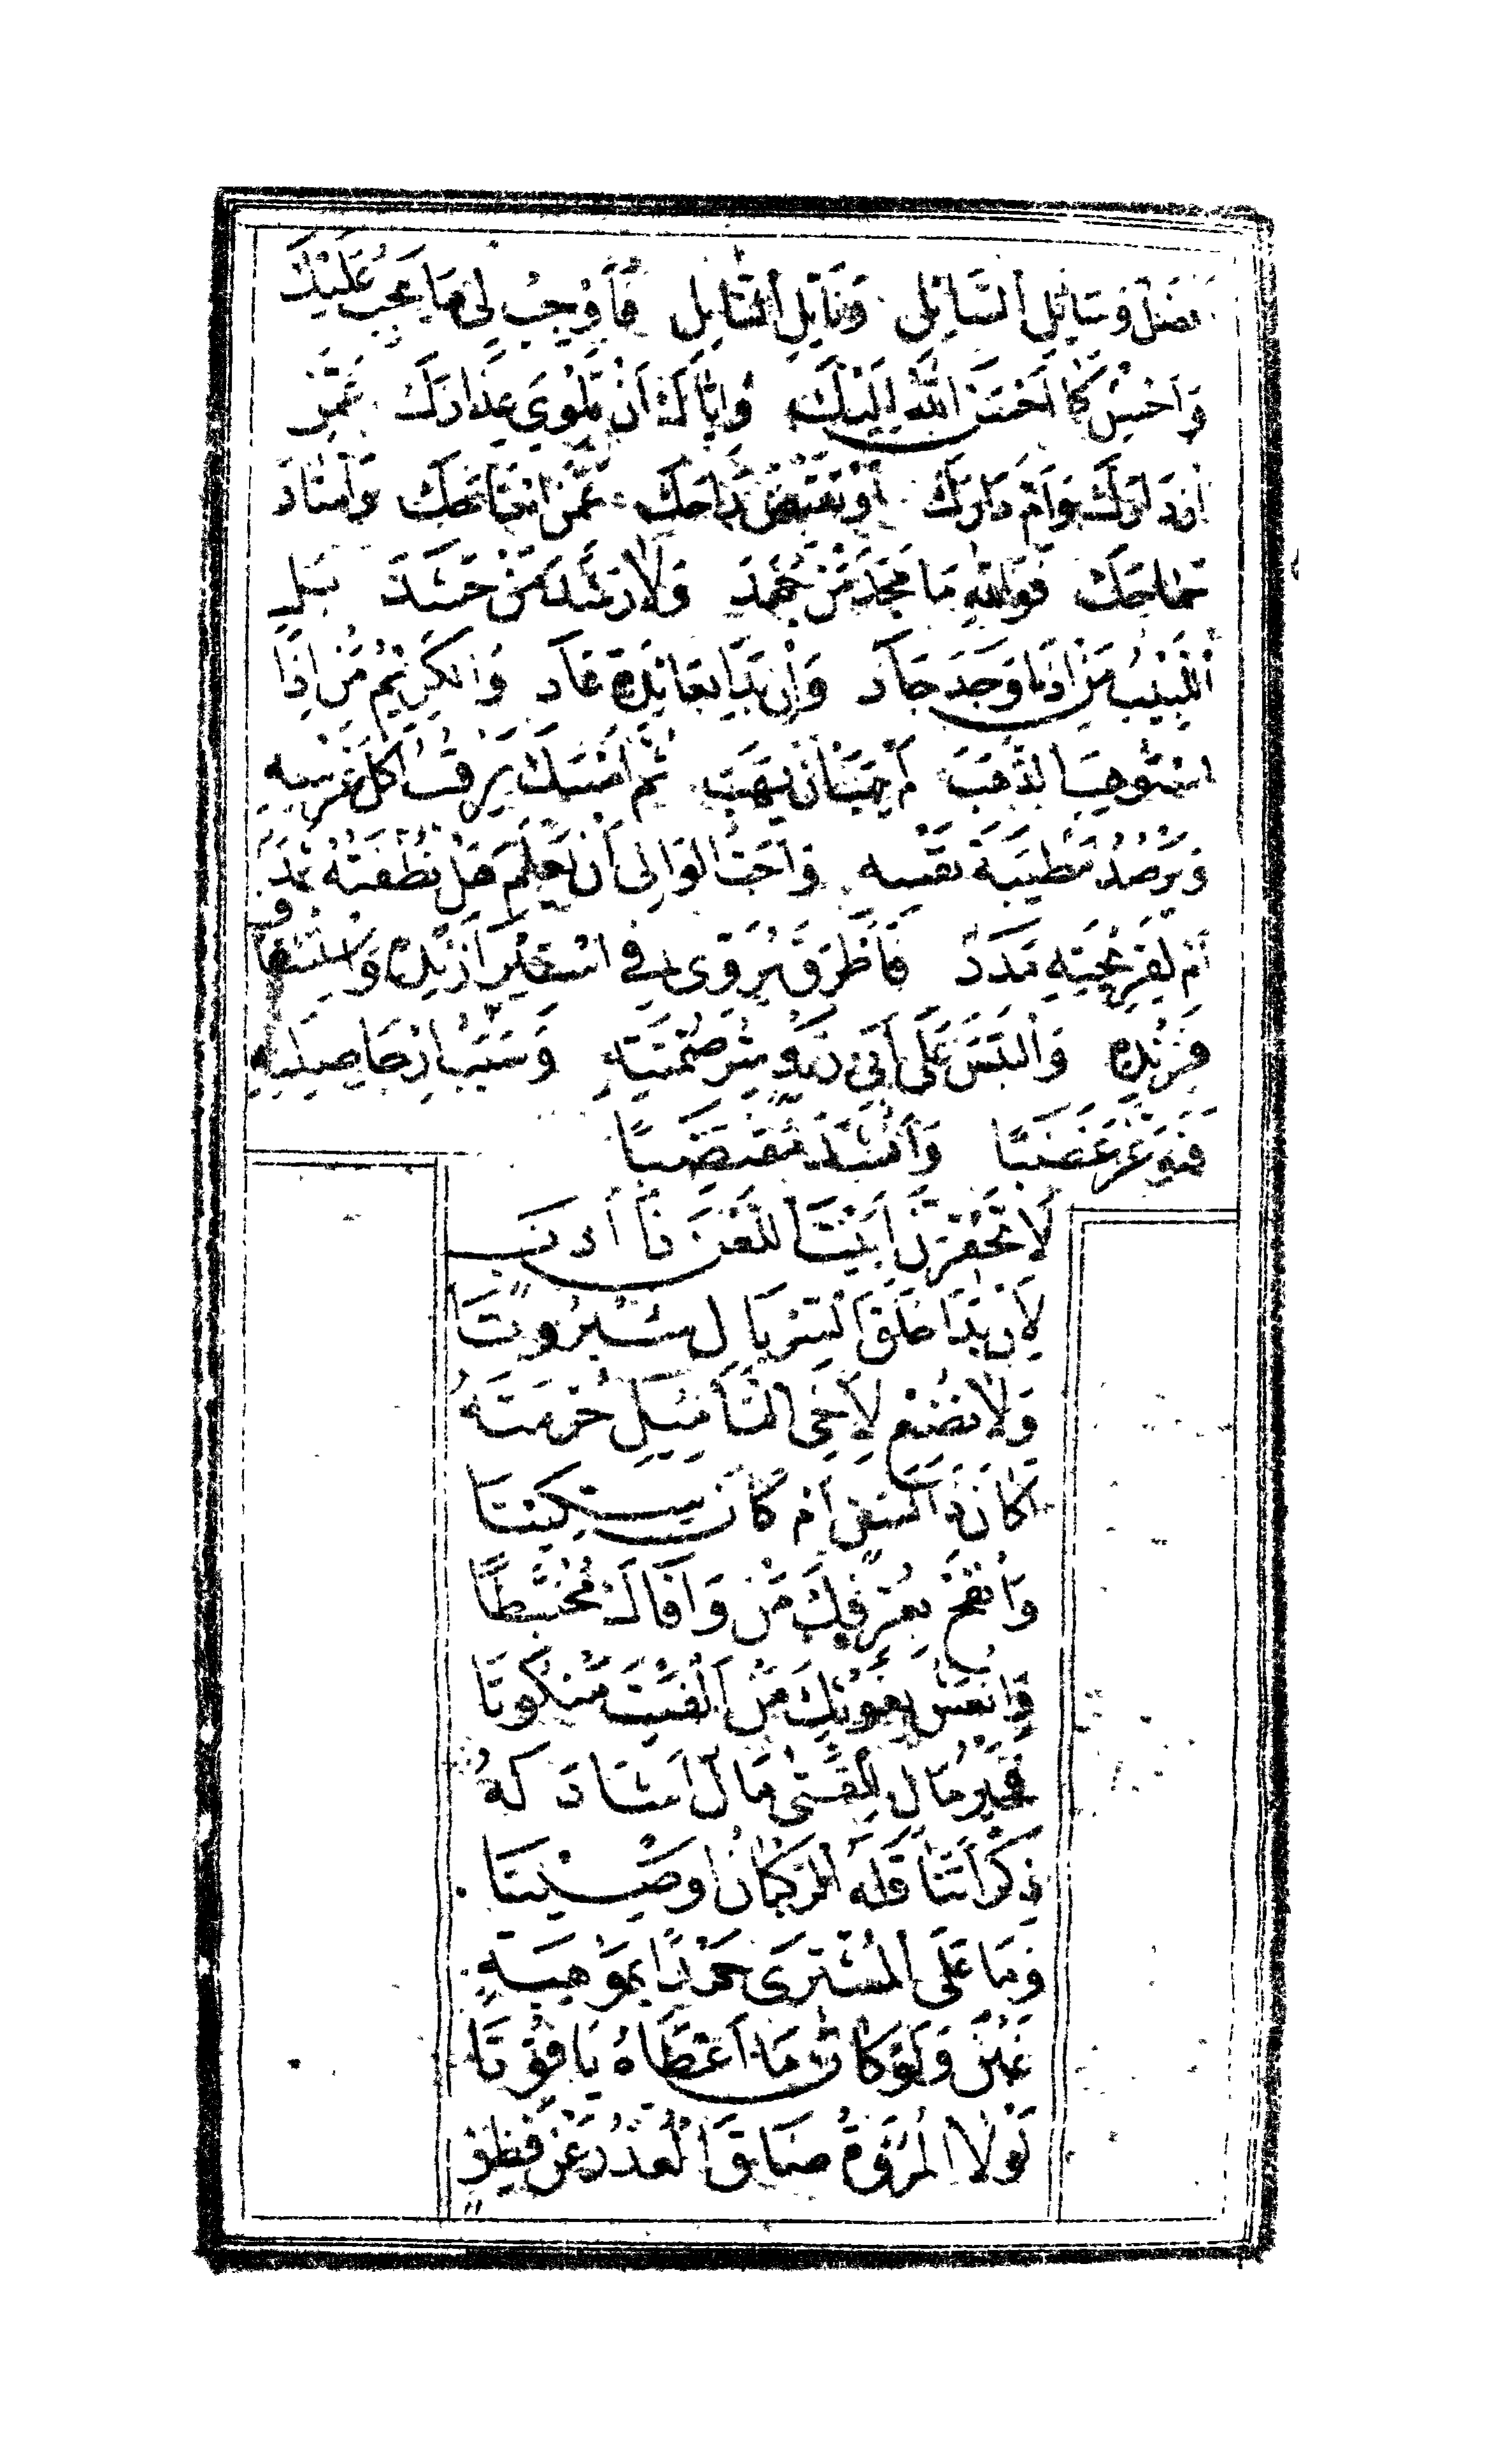 فضل وسائل السائل ونائل النائل فأوجب لي ما يجب عليك
وأحسن كما أحسن الله إليك وإياك أن تلوي عذارك عمن
ازدارك وأم دارك أو تقبض راحك عمن امتاحك وامتار
سماحك فوالله ما مجد من جمد ولا رشد من حشد بل
اللبيب من إذا وجد جاد وإن بدا بعائدة عاد والكريم من إذا
استوهب الذهب لم يهب أن يهب ثم أمسك يرقب أكل غرسه
ويرصد مطيبة نفسه وأحب الوالي أن يعلم هل نطفته ثمد
أم لقريحته مدد فأطرق يروي في استيراء زنده واستشفاف
فرنده والتبس على أبي زيد سر صمتته وسبب إرجاء صلته
فتوغر غضبا وأنشد مقتضبا
لا تحقرن أبيت اللعن ذا أدب
لأن بدا خلق السربال سبروتا
ولا تضع لأخي التأميل حرمته
أكان ذا لسن أم كان سكيتا
وانفح بعرفك من وافاك مختبطا
وانعش بغوثك من ألفيت منكوتا
فخير مال الفتى مال أشاد له
ذكرا تناقله الركبان أو صيتا
وما على المشتري حمدا بموهبة
غبن ولو كان ما أعطاه ياقوتا
لولا المروة ضاق العذر عن فطن